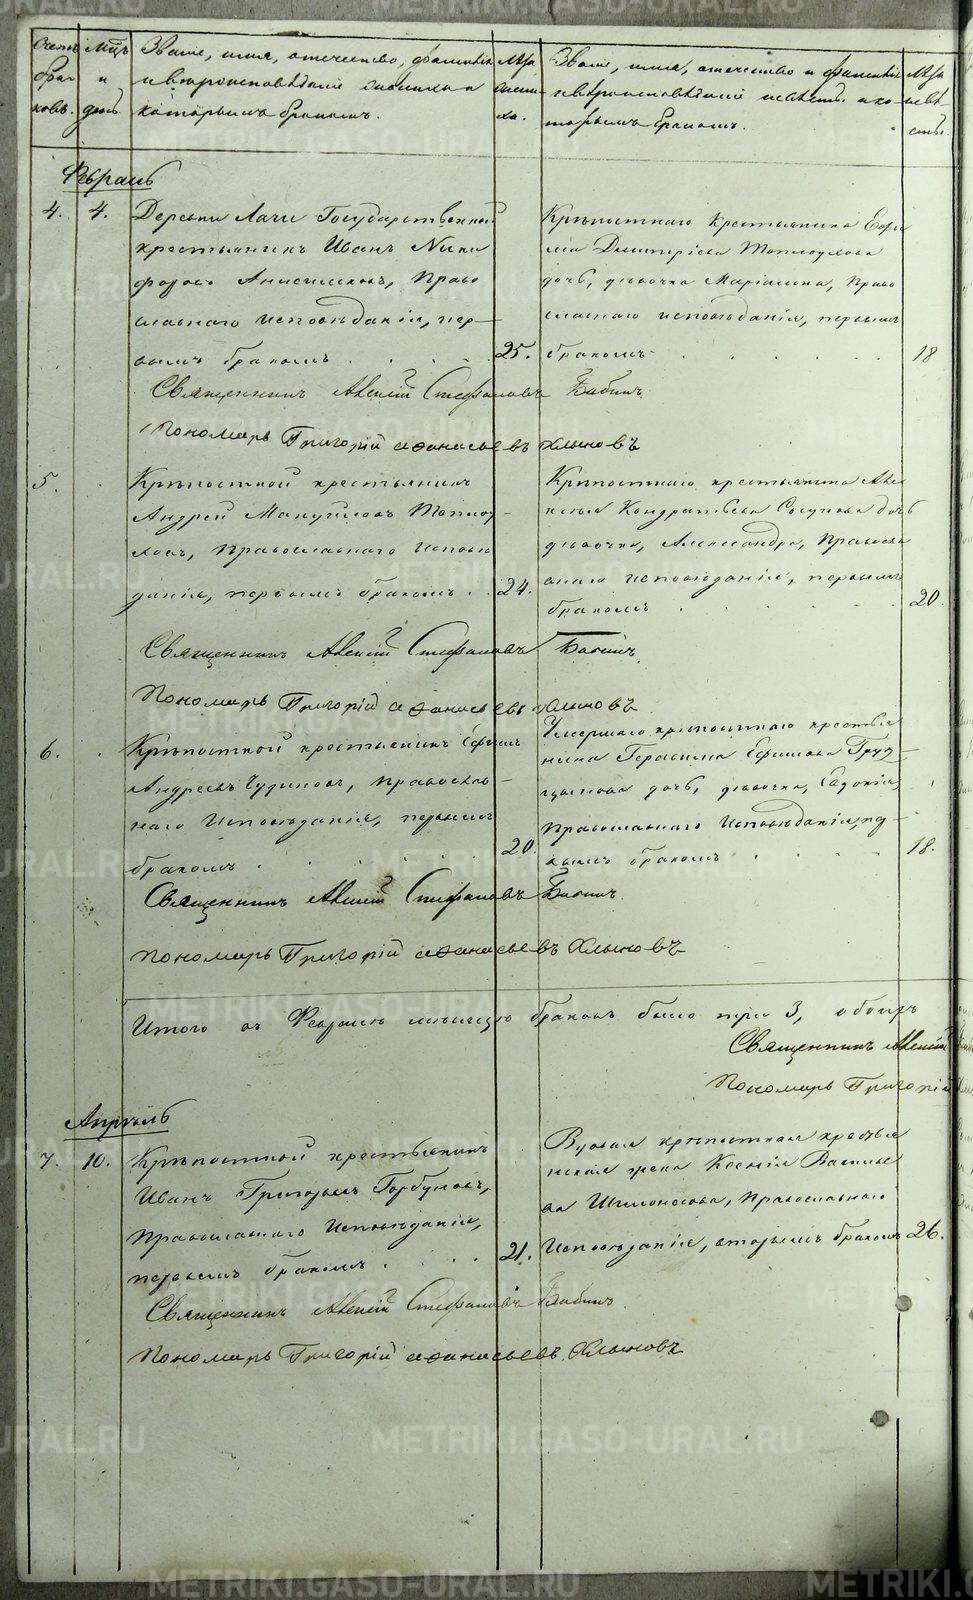 Счетъ браковъ.
Мѣсяцъ и день.
Званіе, имя, отечество, фамилія
и вѣроисповѣданіе жениха и
которымъ бракомъ.
Лѣта жениха.
Званіе, имя, отечество и фамилія
и вѣроисповѣданіе невѣсты и ко-
торымъ бракомъ.
Лѣта невѣсты.
Февраль
4. 4. Деревни Лачи Государственной
крестьянинъ Иванъ Ники
форовъ Анисимковъ, Право
славнаго исповѣданія, пер-
вымъ бракомъ 25.
Крѣпостнаго крестьянина Ефи
ма Димитріева Топлоухова
дочь, дѣвочка Маріамна, Право
славнаго исповѣданія, первымъ
бракомъ 18
Священникъ Алексій Стефановъ Бабинъ
Пономарь Григорій Афанасьевъ Хлыновъ
5. Крѣпостной крестьянинъ
Андрей Мануиловъ Топлоу-
ховъ, Православнаго исповѣ
данія, первымъ бракомъ 24.
Крѣпостнаго крестьянина Алек
сѣя Кондратьева Сосунова дочь
дѣвочка, Александра, Правосла
внаго исповѣданія, первымъ
бракомъ 20.
Священникъ Алексій Стефановъ Бабинъ.
Пономарь Григорій Афанасьевъ Хлыновъ
6. Крѣпостной крестьянинъ Ефимъ
Андреевъ Чудиновъ, Православ-
наго Исповѣданія, первымъ
бракомъ 20.
Умершаго крѣпостнаго крестья
нина Герасима Ефимова
дочь, дѣвочка, Евдокія,
Православнаго Исповѣданія, пер-
вымъ бракомъ 18.
Священникъ Алексій Стефановъ Бабинъ.
Пономарь Григорій Афанасьевъ Хлыновъ
Итого въ Февралѣ мѣсяцѣ браковъ было три 3, обоихъ
Священникъ Алексій
Пономарь Григорій
Апрѣль
7. 10. Крѣпостной крестьянинъ
Иванъ Григорьевъ Горбуновъ,
Православнаго Исповѣданія,
первымъ бракомъ 21.
Вдовая крѣпостная крестья
нская жена Ксенія Василье
ва Шилоносова, Православнаго
Исповѣданія, вторымъ бракомъ 26.
Священникъ Алексій Стефановъ Бабинъ.
Пономарь Григорій Афанасьевъ Хлыновъ
METRIKI.GASO-URAL.RU